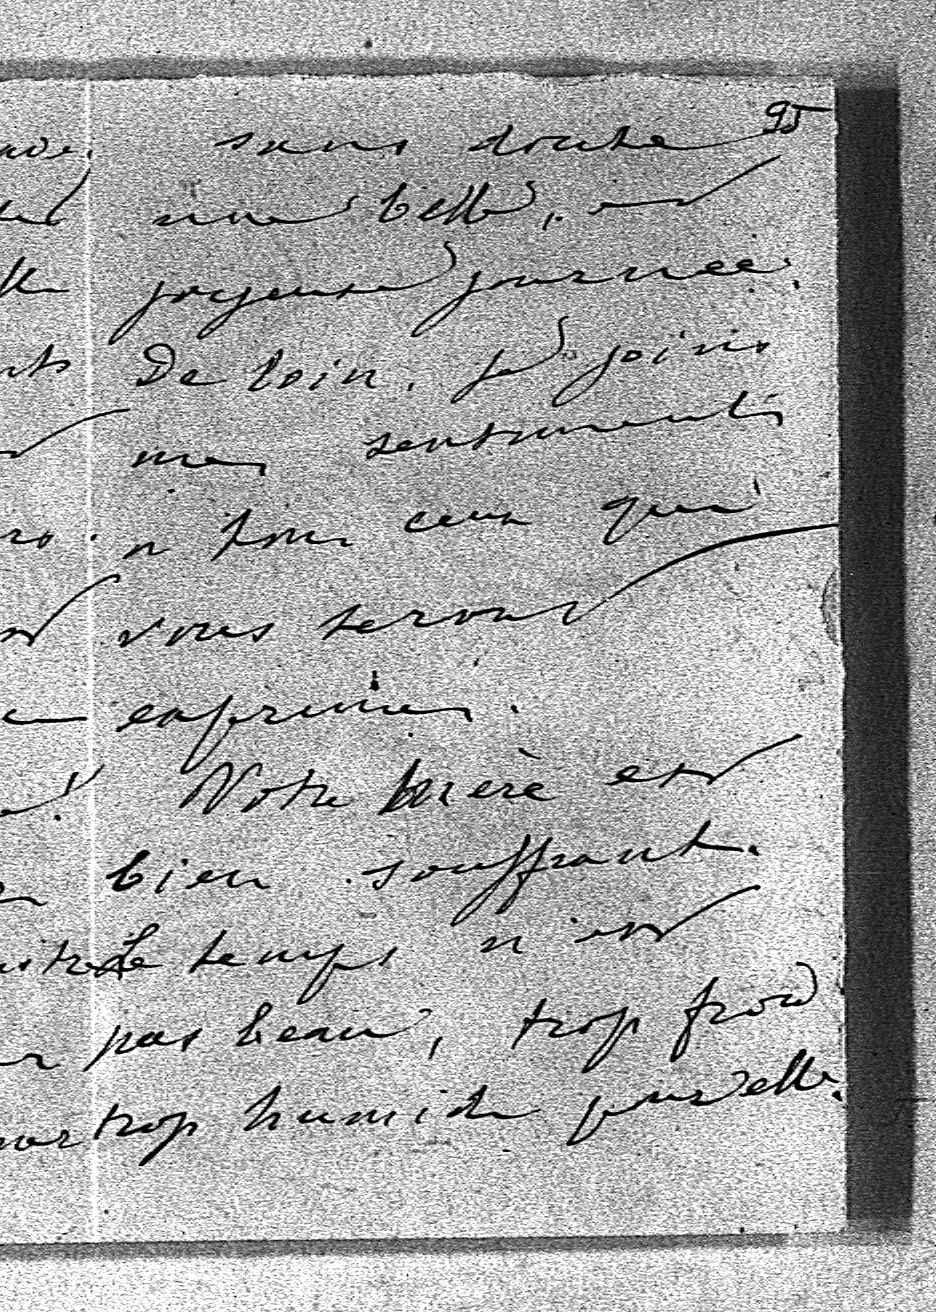 95
sans doute
une belle, et
joyeuse journée.
De loin, je joins
mes sentiments
a tous ceux qui
vous seront
exprimés.
Votre mère est
bien souffrante.
Le temps n'est
pas beau, trop froid
trop humide pour elle.